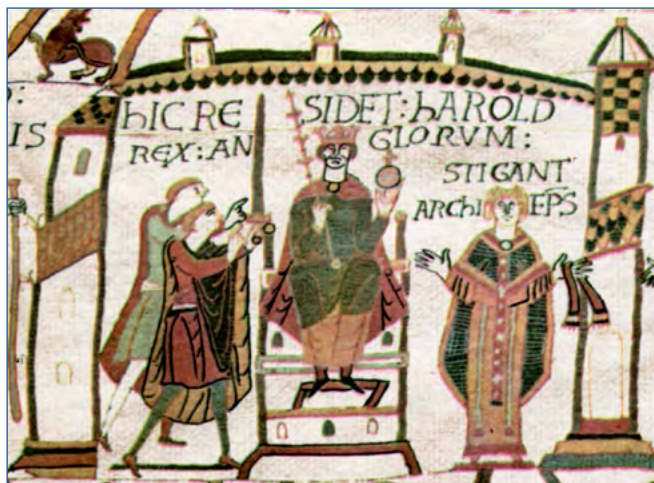 :
IS
hIC RE SIDET : hAROLD
REX : AN GLORVM :
STIGANT
ARChI EPS